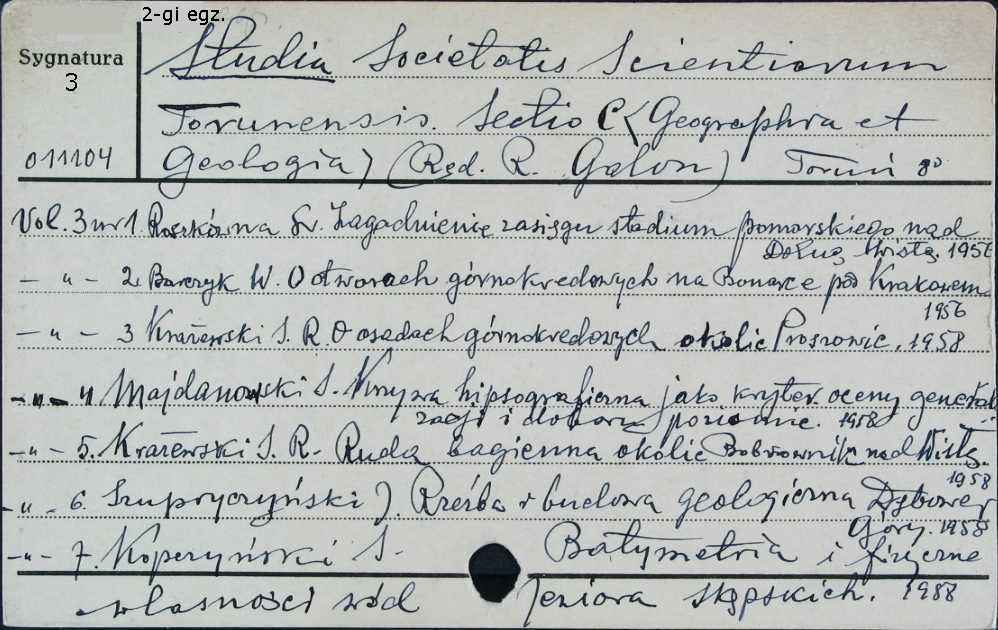 2-gi egz.
Sygnatura
3
011104
Studia Societatis Scientiarum
Torunensis. Sectio C (Geographia et
Geologia) (Red. R. Galon) Toruń 8°
Vol. 3 nr 1. Roszkówna L. Zagadnienie zasięgu stadium pomorskiego nad
Dolną Wisłą. 1956
- " - 2. Barczyk W. O utworach górnokredowych na Bonarce pod Krakowem
1956
- " - 3 Krażewski S. R. O osadach górnokredowych okolic Proszowic. 1958
- " - 4 Majdanowski S. Krzywa hipsograficzna jako kryter. oceny general.
zacji i doboru poziomic. 1958
- " - 5. Krażewski S. R. Ruda bagienna okolic Bobrownik nad Wisłą.
1958
- " - 6. Szupryczyński J. Rzeźba i budowa geologiczna Dębowej
Góry. 1958
- " - 7. Koperzyński S. Batymetria i fizyczne
własności wód Jeziora skępskich. 1958